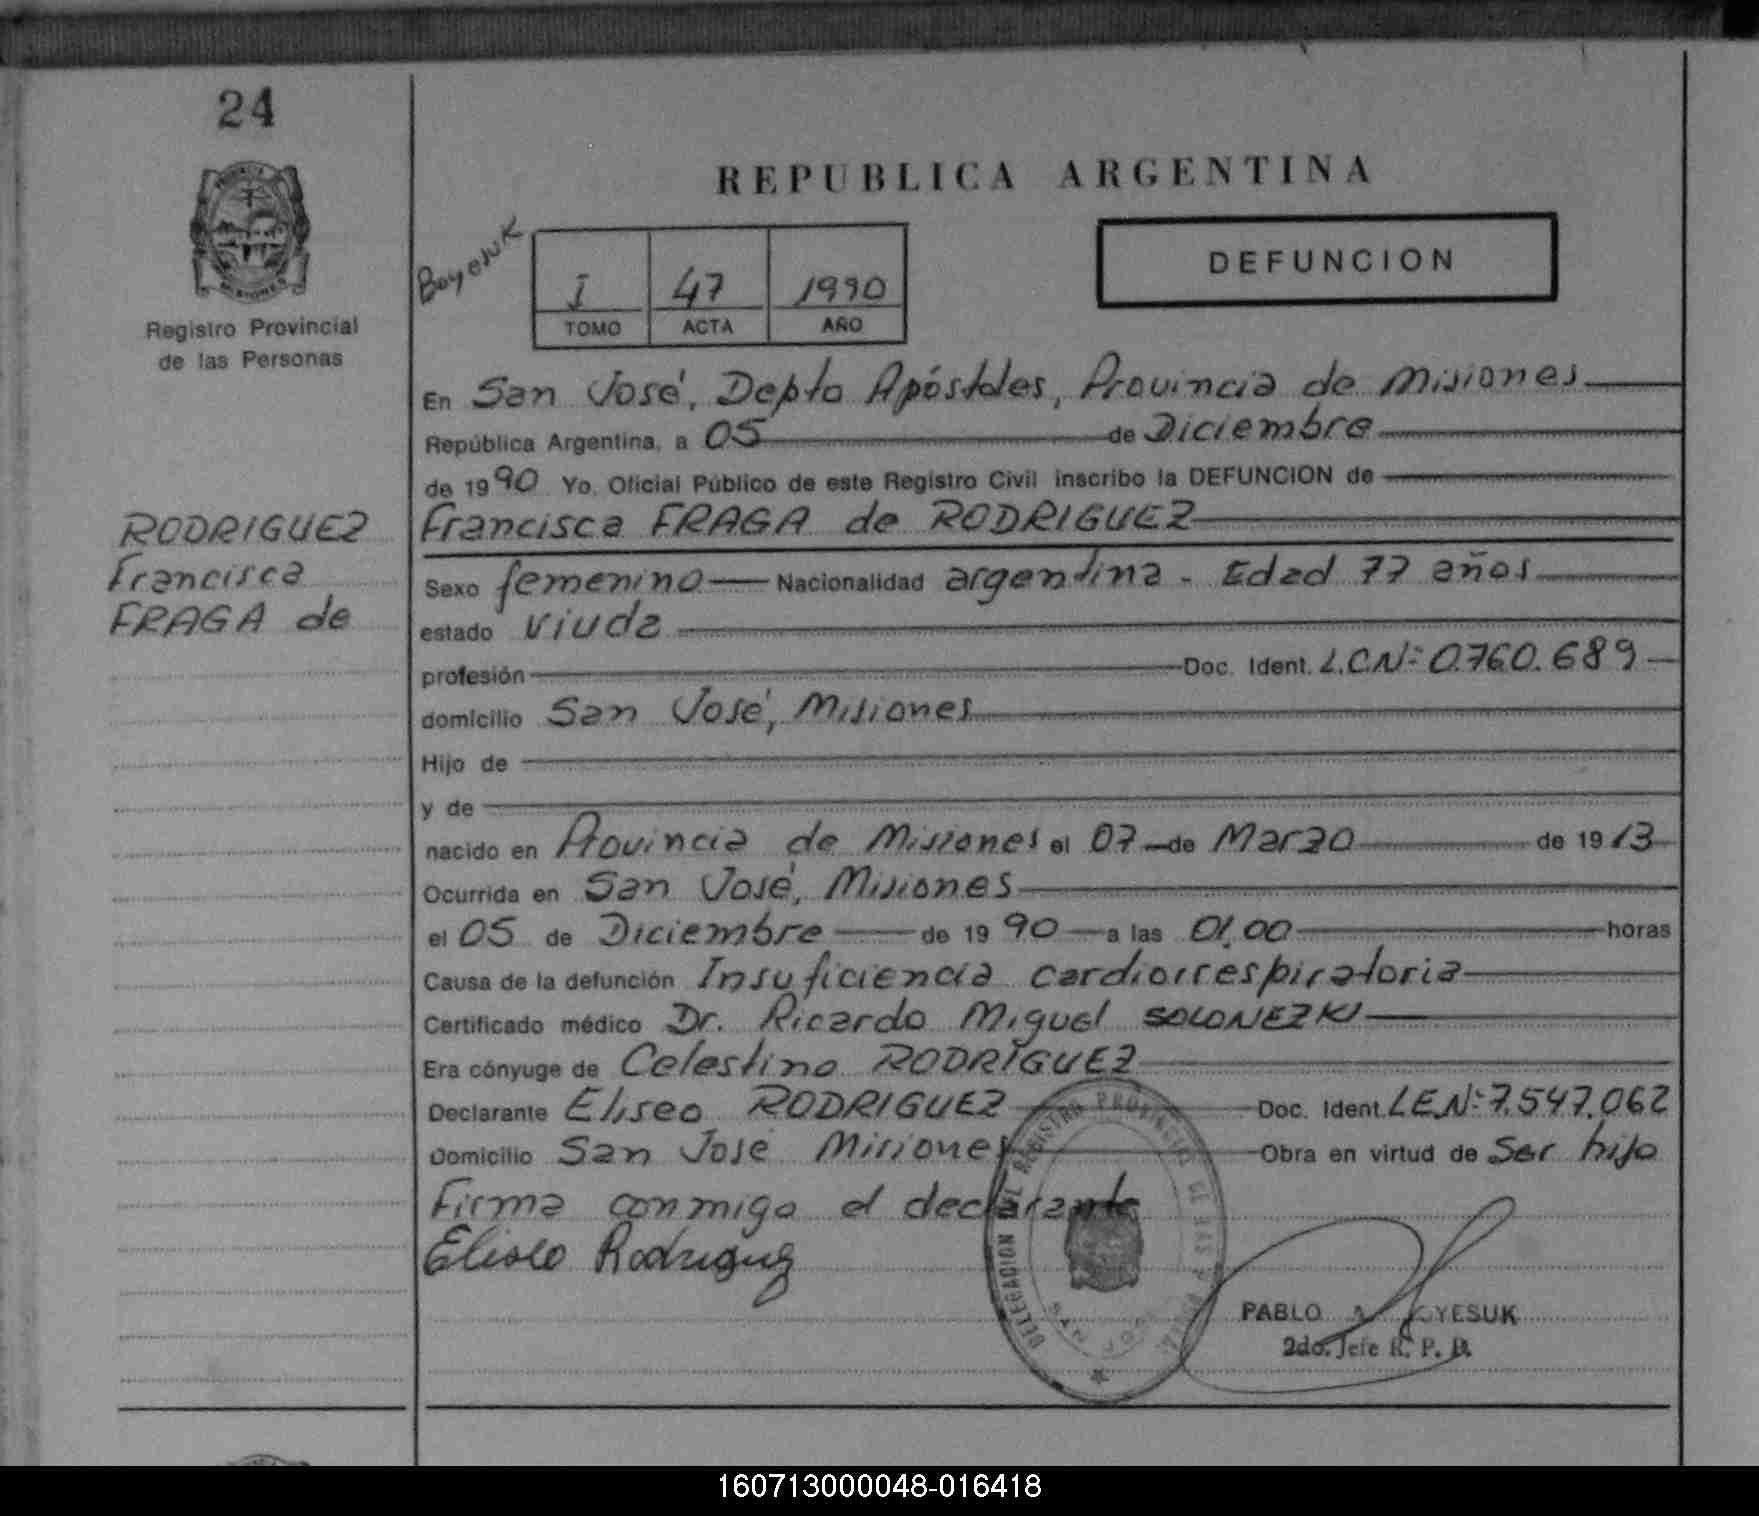 24
REPUBLICA ARGENTINA
Boyesuk
I 47 1990
TOMO ACTA AÑO
DEFUNCION
MISIONES
Registro Provincial
de las Personas
En San José, Depto Apóstoles, Provincia de Misiones
República Argentina, a 05 de Diciembre
de 1990 Yo, Oficial Público de este Registro Civil inscribo la DEFUNCION de
RODRIGUEZ
Francisca
FRAGA de
Francisca FRAGA de RODRIGUEZ
Sexo femenino Nacionalidad argentina - Edad 77 años
estado viuda
profesión Doc. Ident. L.C.Nº 0.760.689
domicilio San José, Misiones
Hijo de
y de
nacido en Provincia de Misiones el 07 de Marzo de 1913
Ocurrida en San José, Misiones
el 05 de Diciembre de 1990 a las 01,00 horas
Causa de la defunción Insuficiencia cardiorrespiratoria
Certificado médico Dr. Ricardo Miguel SOLONEZKI
Era cónyuge de Celestino RODRÍGUEZ
Declarante Eliseo RODRIGUEZ Doc. Ident. L.E.Nº 7.547.062
Domicilio San José Misiones Obra en virtud de ser hijo
Firma conmigo el declarante
Eliseo Rodriguez
DELEGACION DEL REGISTRO PROVINCIAL DE LAS
PABLO A. BOYESUK
2do. Jefe R. P. P.
160713000048-016418